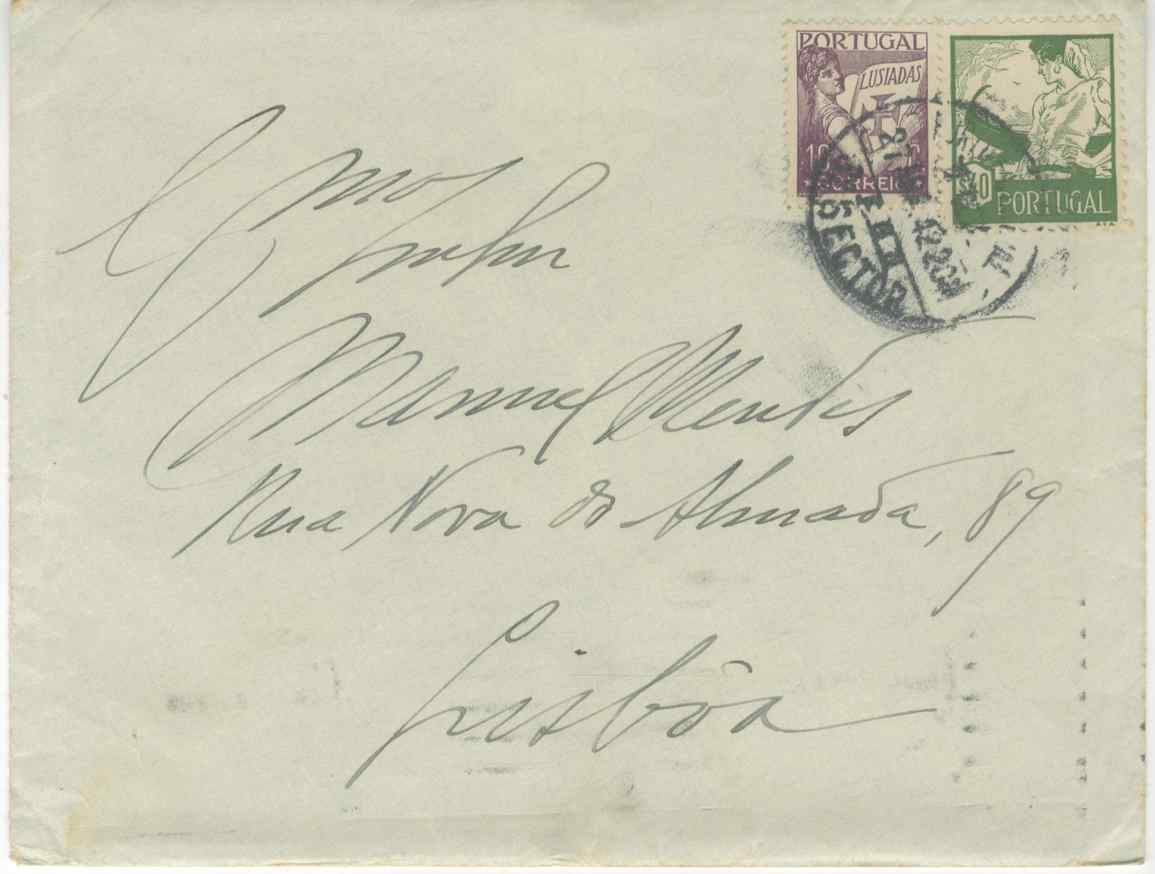 PORTUGAL
LUSIADAS
CORREIO
$40
PORTUGAL
SECTOR
Exmo Senhor
Manuel Mendes
Rua Nova do Almada, 89
Lisbôa